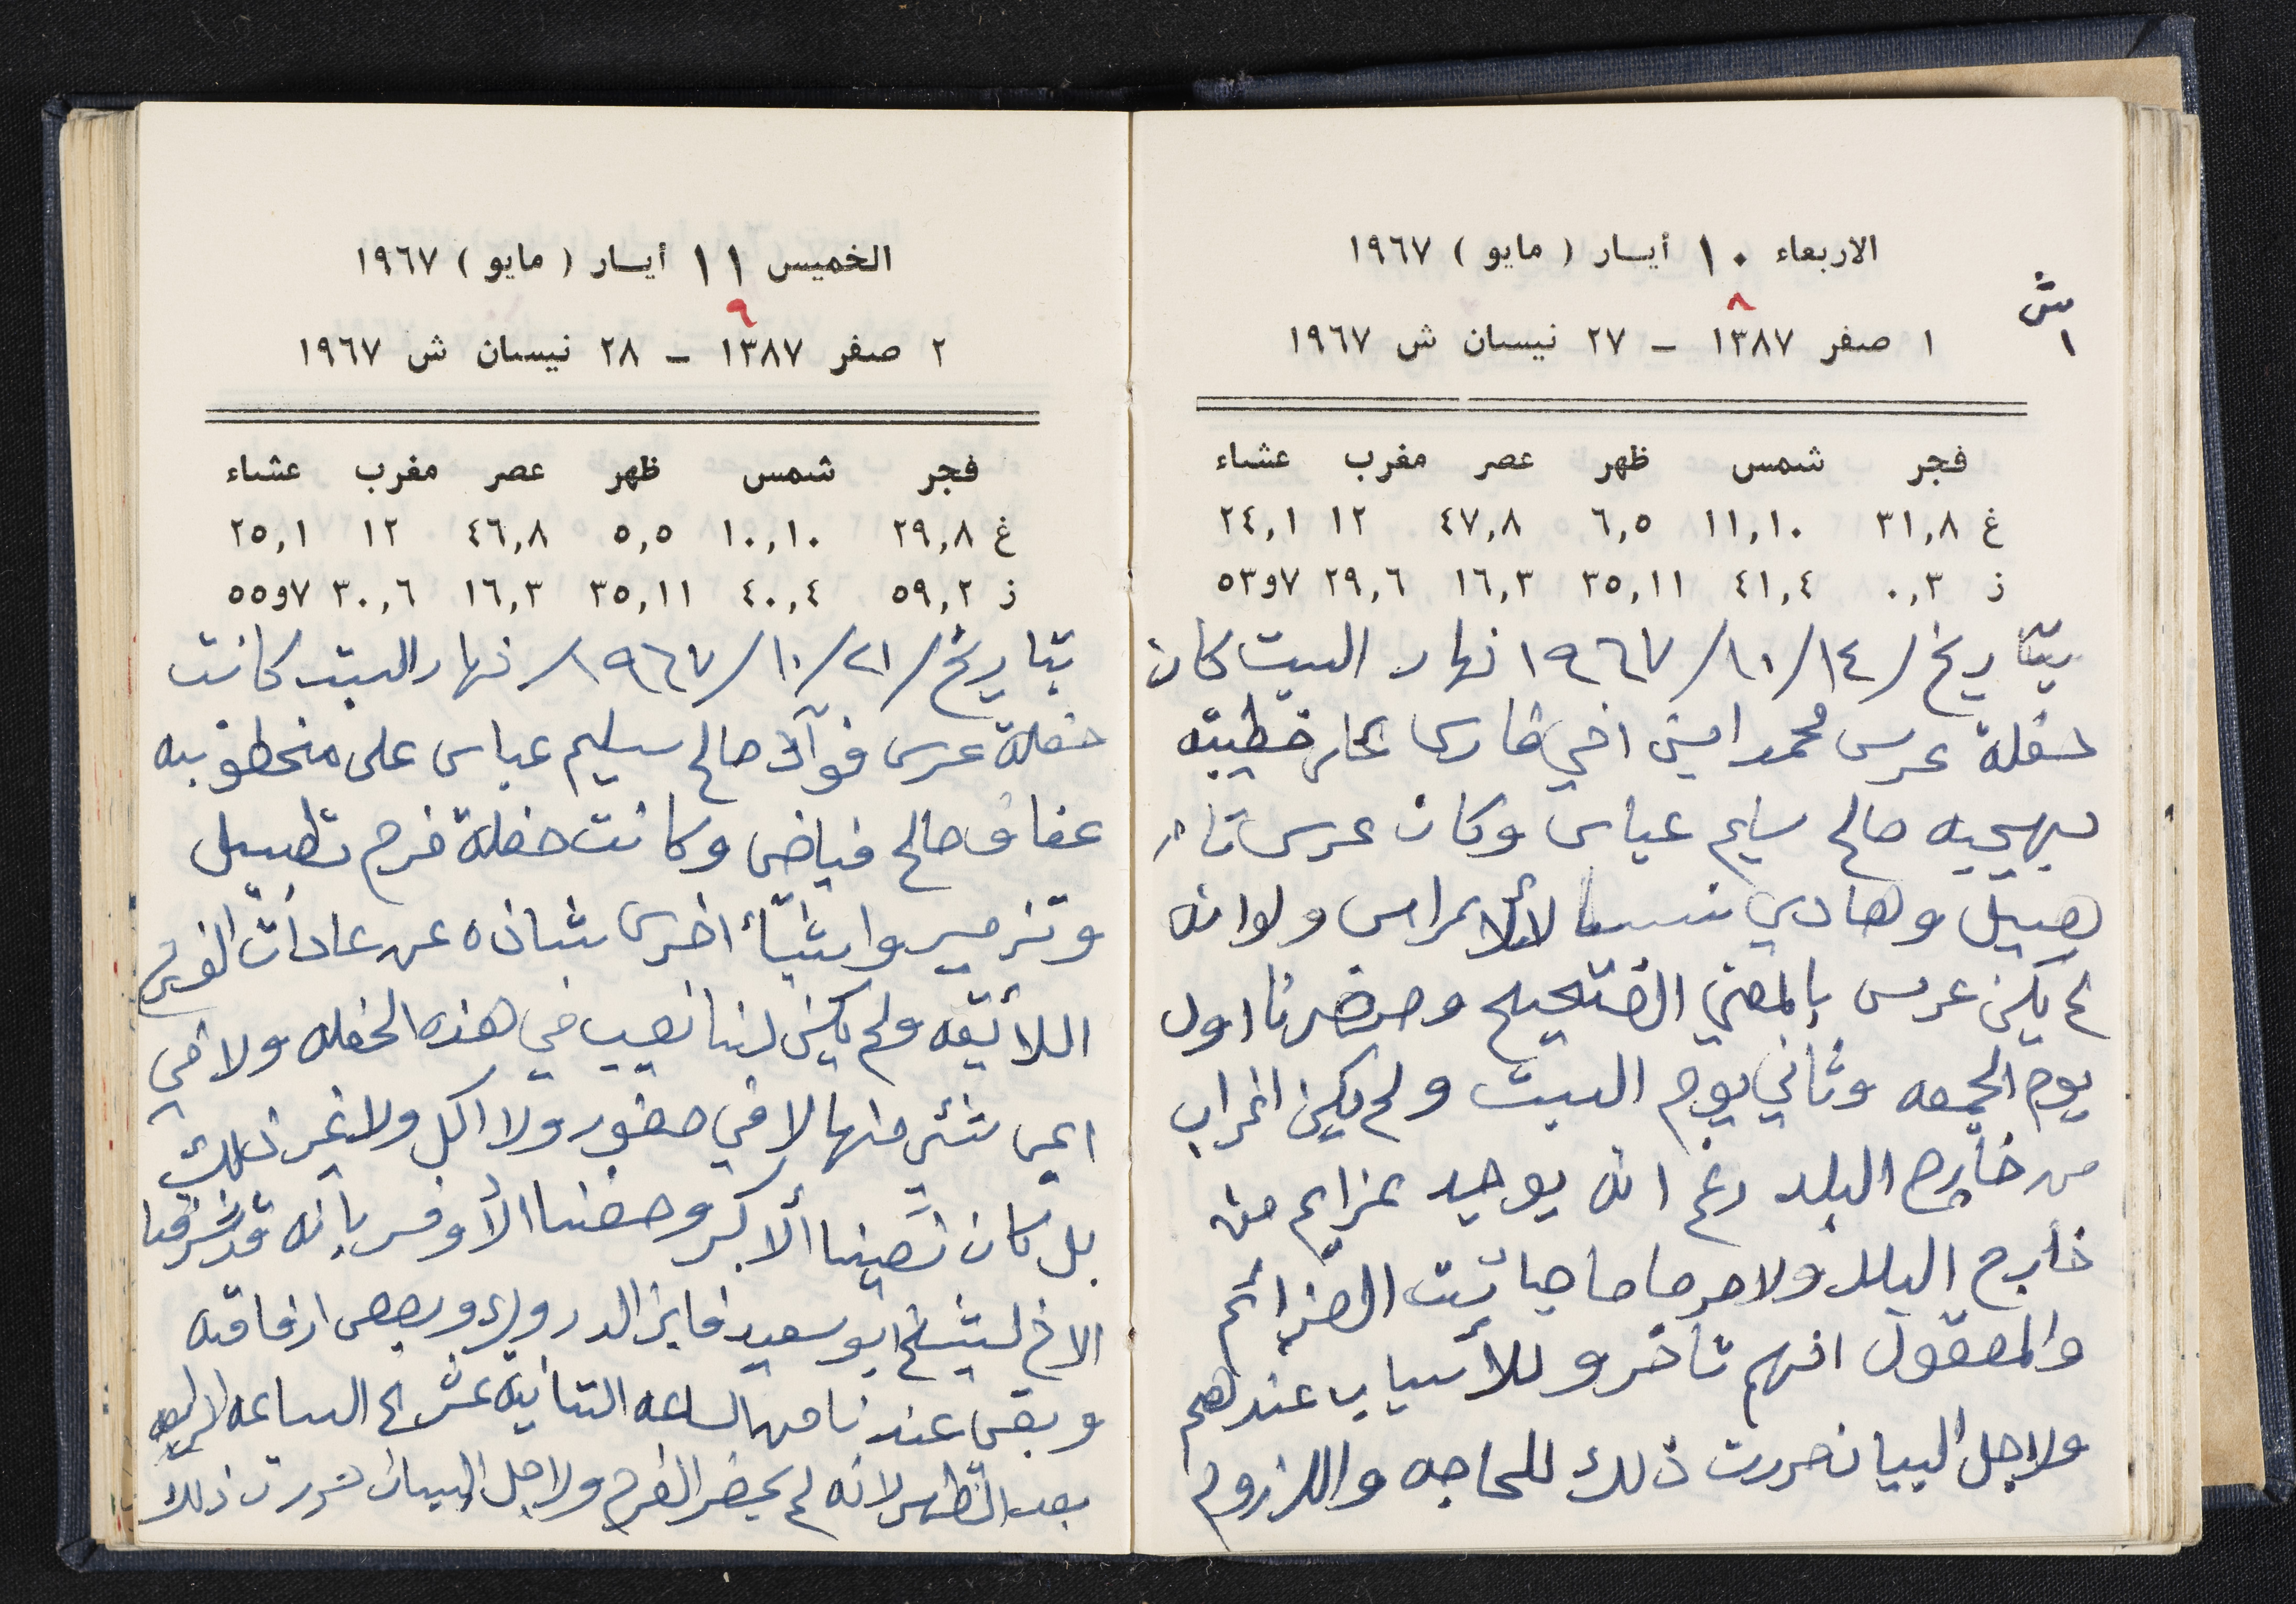 الاربعاء ١٠ أيسار ( مايو ) ١٩٦٧
٨
ش
١
١ صفر ١٣٨٧ - ٢٧ نيسان ش ١٩٦٧
فجر شمس ظهر عصر مغرب عشاء
غ ٣١,٨ ١١,١٠ ٦,٥ ٤٧,٨ ١٢ ٢٤,١
ز ٠,٣ ٤١,٤ ٣٥,١١ ١٦,٣ ٢٩,٦ ٧و٥٣
بتاريخ /١٤/١٠/١٩٦٧ نهار السبت كان
حفلة عرس محمد امين اخي فارس على خطيبته
بهيجيه صالح سليم عباس وكان عرس
وهادي نسبيا للأعراس ولو انه
لم يكن عرس بالمعنى الصحيح وحضرنا اول
يوم الجمعه وثاني يوم السبت ولم يكن اغراب
من خارج البلد رغم انه يوجد عزايم من
خارج البلد ولاحد ما جائت العزائم
والمعقول انهم تأخرو للأسباب عندهم
ولاجل البيان حررت ذلك للحاجه واللزوم
الخميس ١١ أيسار ( مايو ) ١٩٦٧
٩
٢ صفر ١٣٨٧ - ٢٨ نيسان ش ١٩٦٧
فجر شمس ظهر عصر مغرب عشاء
غ ٢٩,٨ ١٠,١٠ ٥,٥ ٤٦,٨ ١٢ ٢٥,١
ز ٥٩,٢ ٤٠,٤ ٣٥,١١ ١٦,٣ ٣٠,٦ ٧و٥٥
بتاريخ /٢١/١٠/١٩٦٧/ نهار السبت كانت
حفلة عرس فوآد صالح سليم عباس على مخطوبته
عفاف صالح فياض وكانت حفلة فرح تطبيل
وتزمير واشيأ اخرى شاذه عن عادات الفرح
اللائقه ولم يكن لنا نصيب في هذه الحفله ولا في
اي شئي منها لا في حضور ولا اكل ولا غير ذلك
بل كان نصيبنا ألاكبر وحضنا الأوفر بإنه قد شرفنا
الاخ لشيخ ابو سعيد فايز الدروي وبعض ارفاقه
وبقى عندنا من الساعه الثانية عشر الى الساعه الرابعه
بعد الظهر لانه لم يحضر الفرح ولاجل البيان حررت ذلك